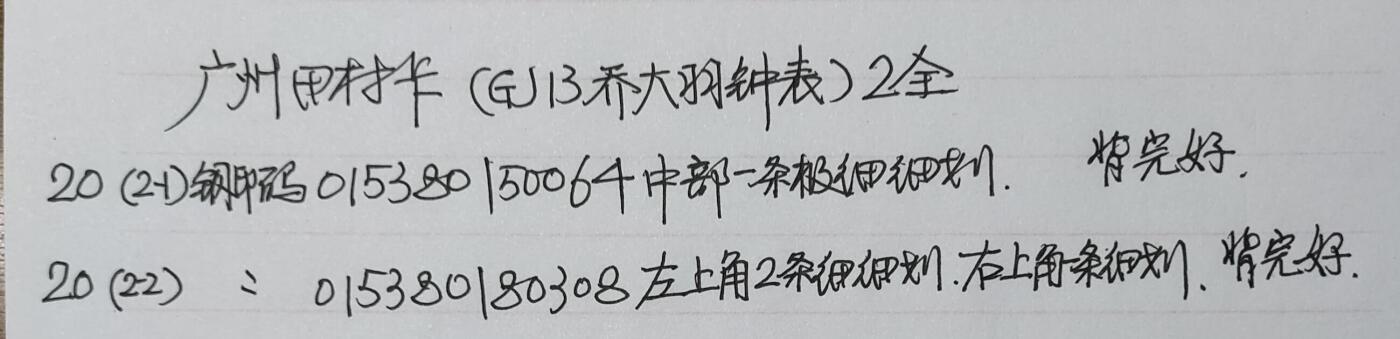 广州田村卡（GJ13乔大羽钟表）2全
20（2-1）钢印码015380150064中部一条极细细划. 背完好.
20（2-2） : 015380180308左上角2条细细划.右上角一条细划.背完好.